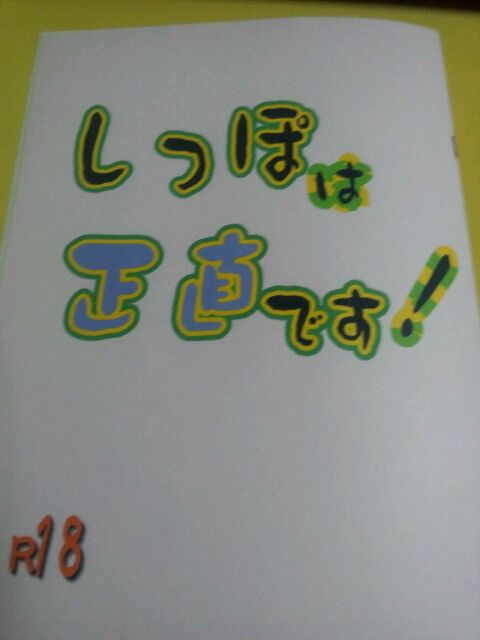 しっぽは
正直です!
R18